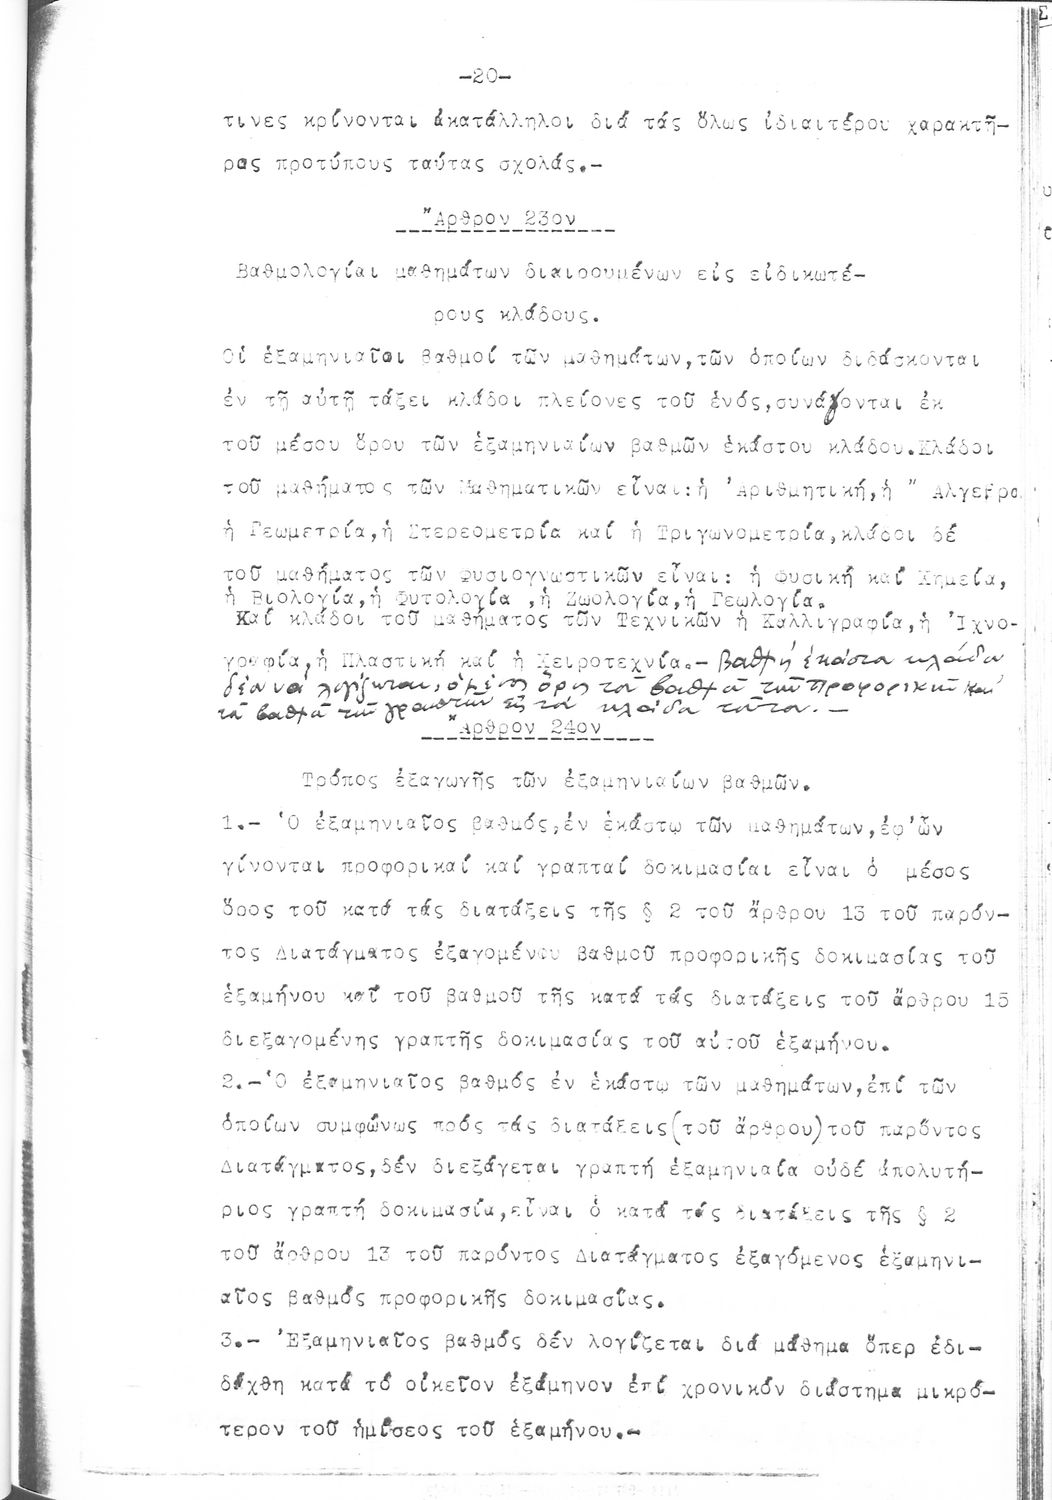 -20-
τινες κρίνονται ἀκατάλληλοι διά τάς ὅλως ἰδιαιτέρου χαρακτῆ-
ρος προτύπους ταύτας σχολάς.-
"Αρθρον 23ον
Βαθμολογίαι μαθημάτων διαιρουμένων εἰς εἰδικωτέ-
ρους κλάδους.
Οἱ ἑξαμηνιαῖοι βαθμοί τῶν μαθημάτων,τῶν ὁποίων διδάσκονται
ἐν τῇ αὐτῇ τάξει κλάδοι πλείονες τοῦ ἑνός,συνάγονται ἐκ
τοῦ μέσου ὅρου τῶν ἑξαμηνιαίων βαθμῶν ἑκάστου κλάδου.Κλάδοι
τοῦ μαθήματος τῶν Μαθηματικῶν εἶναι:ἡ 'Αριθμητική,ἡ " Αλγεβρα
ἡ Γεωμετρία,ἡ Στερεομετρία καί ἡ Τριγωνομετρία,κλάδοι δέ
τοῦ μαθήματος τῶν Φυσιογνωστικῶν εἶναι: ἡ Φυσική καί Χημεία,
ἡ Βιολογία,ἡ Φυτολογία ,ἡ Ζωολογία,ἡ Γεωλογία.
Καί κλάδοι τοῦ μαθήματος τῶν Τεχνικῶν ἡ Καλλιγραφία,ἡ 'Ιχνο-
γραφία,ἡ Πλαστική καί ἡ Χειροτεχνία.-
τοῦ βαθμοῦ τῶν προφορικῶν καί
τοῦ βαθμοῦ τῶν γραπτῶν
"Αρθρον 24ον
Τρόπος ἐξαγωγῆς τῶν ἑξαμηνιαίων βαθμῶν.
1.- 'Ο ἑξαμηνιαῖος βαθμός,ἐν ἑκάστῳ τῶν μαθημάτων,ἐφ'ὧν
γίνονται προφορικαί καί γραπταί δοκιμασίαι εἶναι ὁ μέσος
ὅρος τοῦ κατά τάς διατάξεις τῆς § 2 τοῦ ἄρθρου 13 τοῦ παρόν-
τος Διατάγματος ἐξαγομένου βαθμοῦ προφορικῆς δοκιμασίας τοῦ
ἑξαμήνου καί τοῦ βαθμοῦ τῆς κατά τάς διατάξεις τοῦ ἄρθρου 15
διεξαγομένης γραπτῆς δοκιμασίας τοῦ αὐτοῦ ἑξαμήνου.
2.-'Ο ἑξαμηνιαῖος βαθμός ἐν ἑκάστῳ τῶν μαθημάτων,ἐπί τῶν
ὁποίων συμφώνως πρός τάς διατάξεις(τοῦ ἄρθρου)τοῦ παρόντος
Διατάγματος,δέν διεξάγεται γραπτή ἑξαμηνιαία οὐδέ ἀπολυτή-
ριος γραπτή δοκιμασία,εἶναι ὁ κατά τάς διατάξεις τῆς § 2
τοῦ ἄρθρου 13 τοῦ παρόντος Διατάγματος ἐξαγόμενος ἑξαμηνι-
αῖος βαθμός προφορικῆς δοκιμασίας.
3.- 'Εξαμηνιαῖος βαθμός δέν λογίζεται διά μάθημα ὅπερ ἐδι-
δάχθη κατά τό οἰκεῖον ἑξάμηνον ἐπί χρονικόν διάστημα μικρό-
τερον τοῦ ἡμίσεος τοῦ ἑξαμήνου.-